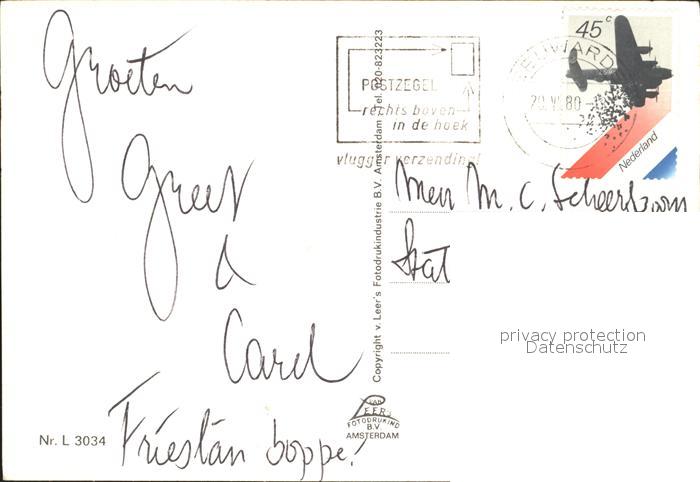 Groeten
Greet
&
Carel
Frieslân boppe!
Nr. L 3034
Copyright v. Leer's Fotodrukindustrie B.V. Amsterdam Tel. 020-823223
VAN
LEER'S
FOTODRUKIND
B.V.
AMSTERDAM
POSTZEGEL
rechts boven
in de hoek
vlugger verzending!
80
45c
Nederland
Mevr M. C. Scheerboom
privacy protection
Datenschutz